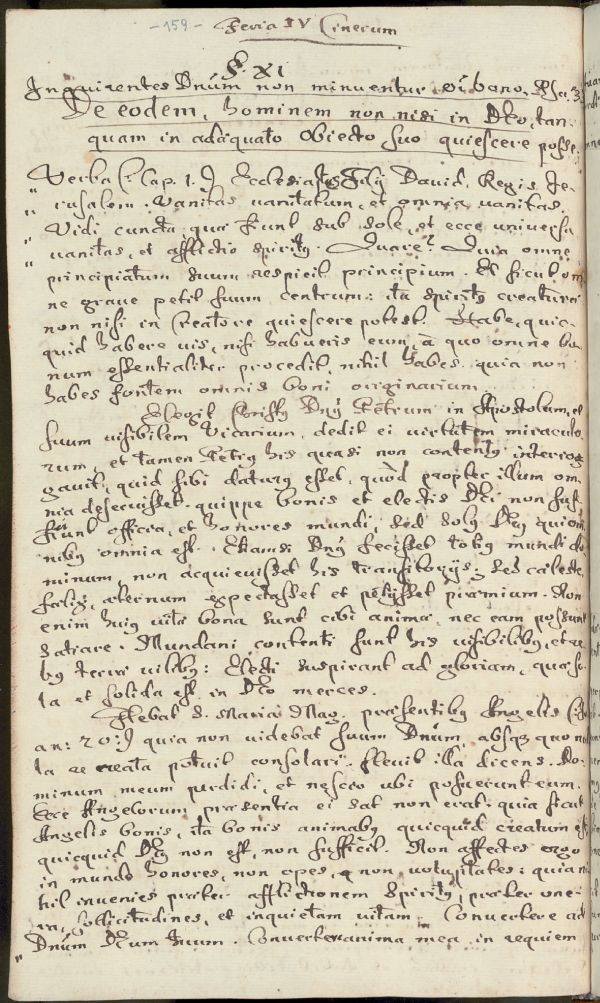 - 159 - Feria IV Cinerum
§. XI
Inquirentes Dnum non minuentur oi bono. Psa. 33
De eodem, hominem non nisi in Deo, tan-
quam in adaequato Obiecto suo quiescere posse.
Verba (: Cap. 1. :) Ecclesiastes Filij David, Regis Je-
" rusalem. Vanitas vanitatum, et omnia vanitas.
" Vidi cuncta, quae fiunt sub sole, et ecce universa
" vanitas, et afflictio spiritus. Quare? Quia omne
principiatum suum respicit principium. Et sicut om-
ne grave petit suum centrum: ita spiritus creaturae
non nisi in Creatore quiescere potest. Habe, quic-
quid habere vis, nisi habueris eum, a quo omne bo-
num essentialiter procedit, nihil habes. quia non
habes fontem omnis boni originarium.
Elegit Christus Dnus Petrum in Apostolum, et
suum visibilem Vicarium, dedit ei virtutem miraculo-
rum, et tamen Petrus his quasi non contentus interro-
gavit, quid sibi daturus esset, quòd propter illum om-
nia deseruisset. quippe bonis et electis Dei non suf-
fiunt officia, et honores mundi, sed solus Deus qui om-
nibus omnia est. Etiamsi Dnus fecisset totius mundi do-
minum, non acquievisset his transitorijs; sed caeleste,
satis, aeternum expectasset et petijsset praemium. Non
enim huius vitae bona sunt cibi animae, nec eam possunt
satiare. Mundani contenti sunt his visibilibus, et re-
bus terrae vilibus: Electi suspirant ad gloriam, quae so-
la et solida est in Deo merces.
Flebat S. Maria Mag. praesentibus Angelis (: Jo-
an: 20 :) quia non videbat suum Dnum, absque quo nul-
la re creata potuit consolari. flevit illa dicens. Do-
minum meum perdidi, et nescio ubi posuerunt eum.
Ecce Angelorum praesentia ei sat non erat. quia sicut
Angelis bonis, ita bonis animabus quicquid creatum est
quicquid Deus non est, non sufficit. Non affectes ergo
in mundo honores, non opes, non voluptates: quia ni-
hil invenies praeter afflictionem Spiritus, praeter one-
ra, sollicitudines, et inquietam vitam. Convertere ad
" Dnum Deum tuum. Convertere anima mea in requiem